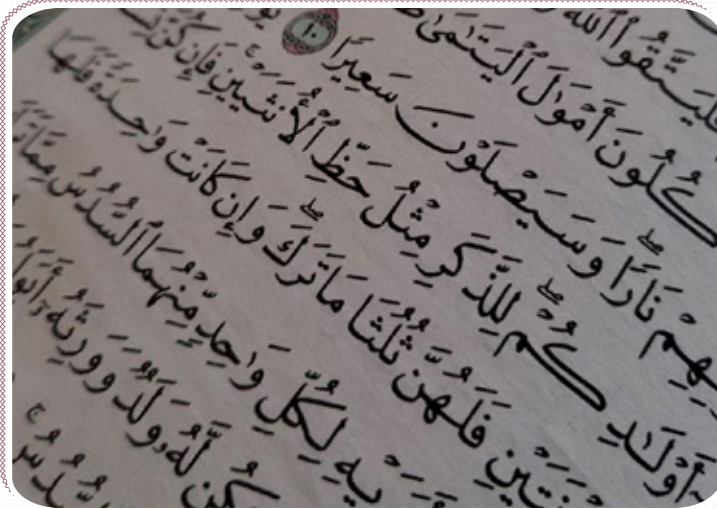 فَلْيَتَّقُوا۟ ٱللَّهَ
كُلُونَ أَمْوَٰلَ ٱلْيَتَـٰمَىٰ
هِمْ نَارًا ۖ وَسَيَصْلَوْنَ سَعِيرًا ١٠ يُو
أَوْلَـٰدِكُمْ ۖ لِلذَّكَرِ مِثْلُ حَظِّ ٱلْأُنثَيَيْنِ ۚ فَإِن كُنَّ
نَتَيْنِ فَلَهُنَّ ثُلُثَا مَا تَرَكَ ۖ وَإِن كَانَتْ وَٰحِدَةً فَلَهَا
يْهِ لِكُلِّ وَٰحِدٍ مِّنْهُمَا ٱلسُّدُسُ مِمَّا تَرَ
كُن لَّهُۥ وَلَدٌ وَوَرِثَهُۥٓ أَبَوَا
سُّدُسُ ۚ